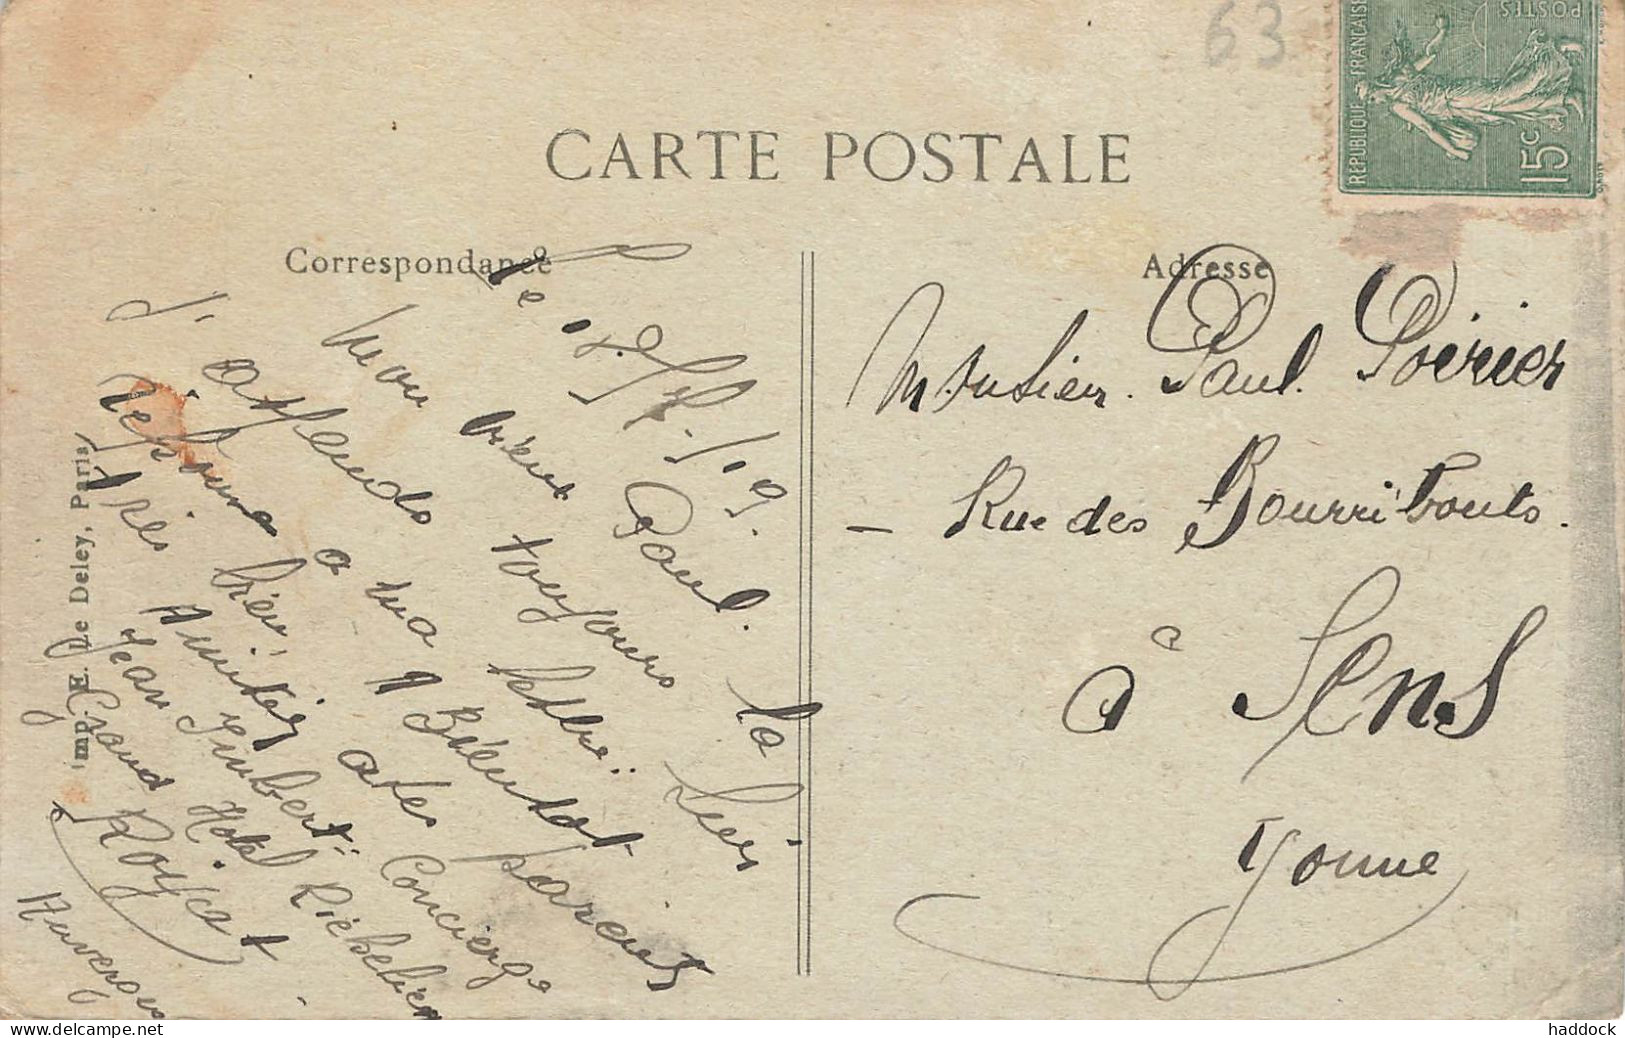 63
RÉPUBLIQUE FRANÇAISE
POSTES
15c
CARTE POSTALE
Correspondance
Adresse
Imp. E. Le Deley, Paris
Le 18/9/19.
Mon vieux Paul.
J'attends toujours la
réponse a ma lettre:
très bien. A Bientot
Amitiés a tes parents
Jean Imbert: Concierge
Grand Hotel Richelieu
Royat
Auvergne
Monsieur. Paul. Poirier
Rue des Bourribouts.
à Sens
Yonne
delcampe.net
haddock